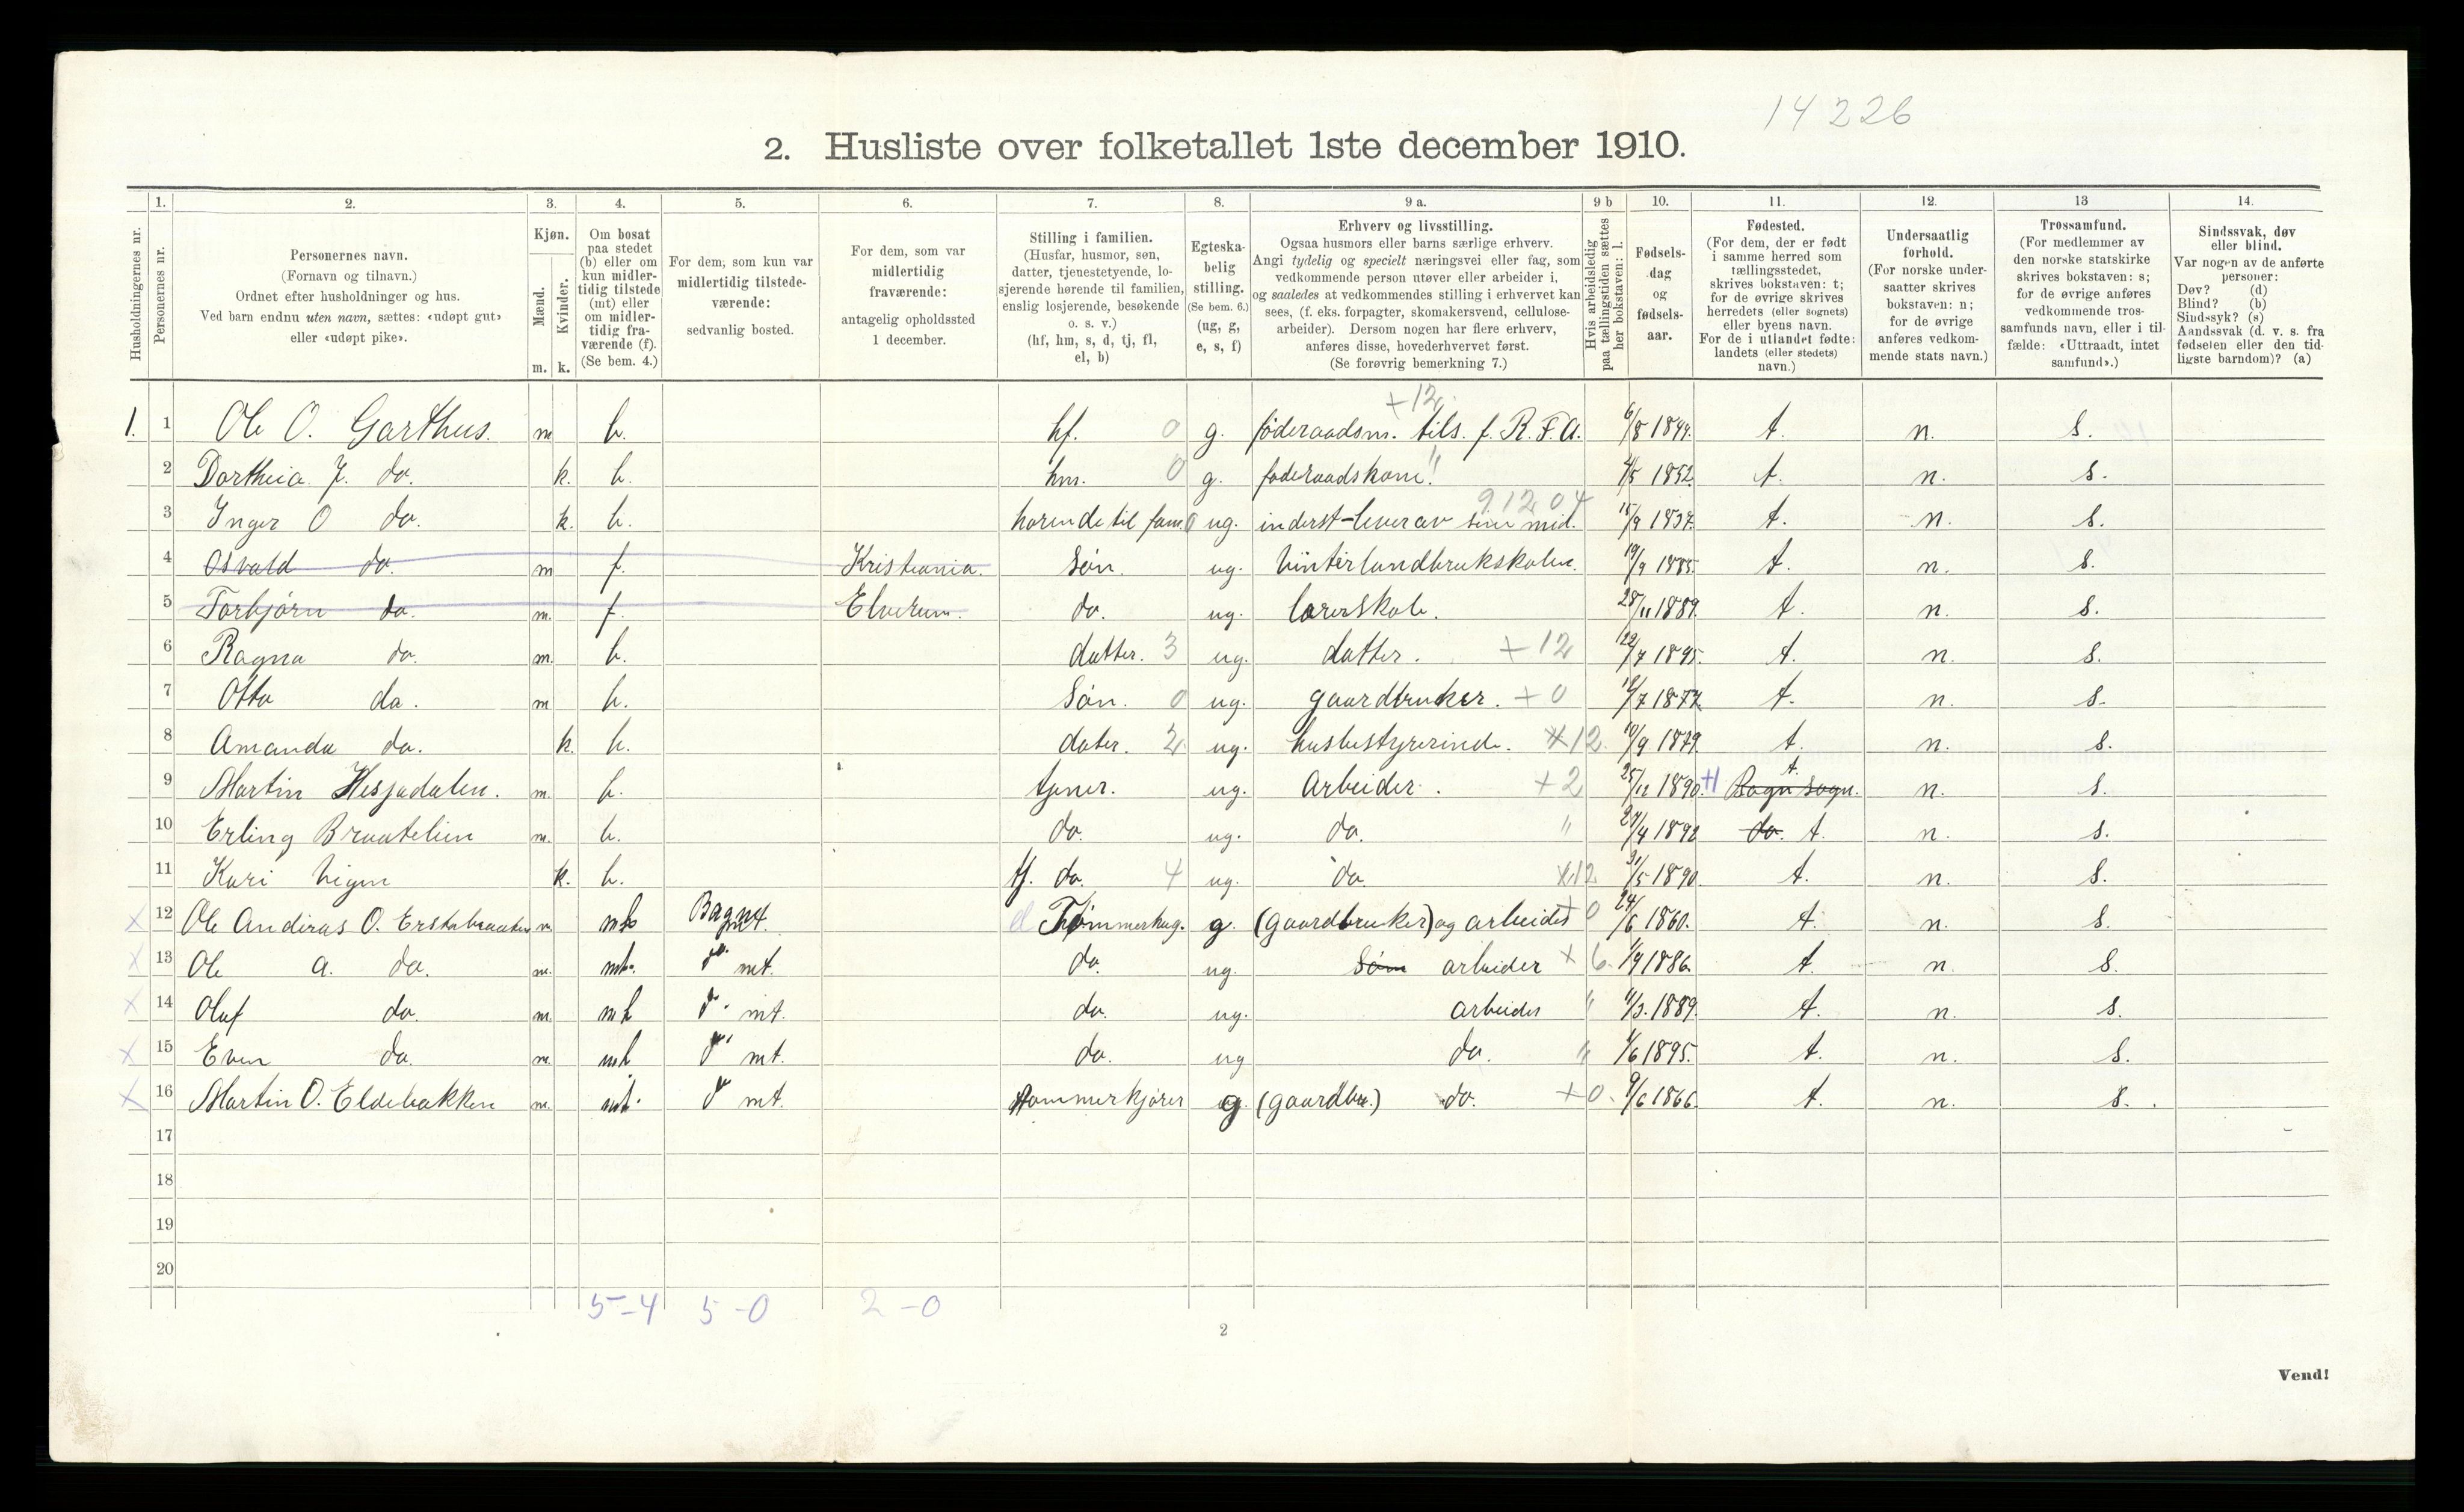 14226
2. Husliste over folketallet 1ste december 1910.
1. 2. 3. 4. 5. 6. 7. 8. 9 a. 9 b 10. 11. 12. 13 14.
Husholdningernes nr.
Personernes nr.
Personernes navn.
(Fornavn og tilnavn.)
Ordnet efter husholdninger og hus.
Ved barn endnu uten navn, sættes: «udøpt gut»
eller «udøpt pike».
Kjøn.
Mænd.
Kvinder.
m. k.
Om bosat
paa stedet
(b) eller om
kun midler-
tidig tilstede
(mt) eller
om midler-
tidig fra-
værende (f).
(Se bem. 4.)
For dem, som kun var
midlertidig tilstede-
værende:
sedvanlig bosted.
For dem, som var
midlertidig
fraværende:
antagelig opholdssted
1 december.
Stilling i familien.
(Husfar, husmor, søn,
datter, tjenestetyende, lo-
sjerende hørende til familien,
enslig losjerende, besøkende
o. s. v.)
(hf, hm, s, d, tj, fl,
el, b)
Egteska-
belig
stilling.
(Se bem. 6.)
(ug, g,
e, s, f)
Erhverv og livsstilling.
Ogsaa husmors eller barns særlige erhverv.
Angi tydelig og specielt næringsvei eller fag, som
vedkommende person utøver eller arbeider i,
og saaledes at vedkommendes stilling i erhvervet kan
sees, (f. eks. forpagter, skomakersvend, cellulose-
arbeider). Dersom nogen har flere erhverv,
anføres disse, hovederhvervet først.
(Se forøvrig bemerkning 7.)
Hvis arbeidsledig
paa tællingstiden sættes
her bokstaven: l.
Fødsels-
dag
og
fødsels-
aar.
Fødested.
(For dem, der er født
i samme herred som
tællingsstedet,
skrives bokstaven: t;
for de øvrige skrives
herredets (eller sognets)
eller byens navn.
For de i utlandet fødte:
landets (eller stedets)
navn.)
Undersaatlig
forhold.
(For norske under-
saatter skrives
bokstaven: n;
for de øvrige
anføres vedkom-
mende stats navn.)
Trossamfund.
(For medlemmer av
den norske statskirke
skrives bokstaven: s;
for de øvrige anføres
vedkommende tros-
samfunds navn, eller i til-
fælde: «Uttraadt, intet
samfund».)
Sindssvak, døv
eller blind.
Var nogen av de anførte
personer:
Døv? (d)
Blind? (b)
Sindssyk? (s)
Aandssvak (d. v. s. fra
fødselen eller den tid-
ligste barndom)? (a)
+12.
1. 1 Ole O. Garthus. m b. hf. 0 g. føderaadsm. tils. f. R.F.A. 6/8 1849. t. n. s.
2 Dorthea J. do. k. b. hm. 0 g. føderaadskone " 4/5 1852. t. n. s.
91204
3 Inger O do. k. b. hørende til fam 0 ug. inderst-lever av sine mid. 15/9 1837. t. n. s.
4 Osvald do. m f. Kristiania. Søn. ug. Vinterlandbrukskolen. 19/9 1885. t. n. s.
5 Torbjørn do. m. f. Elverum. do. ug. lærerskole. 28/11 1889. t. n. s.
6 Ragna do. m. b. datter. 3 ug. datter. +12 22/7 1895. t. n. s.
7 Otto do. m b. Søn. 0 ug. gaardbruker. +0 18/7 1877. t. n. s.
8 Amanda do. k. b. dater. 2 ug. husbestyrerinde. +12. 10/9 1879. t. n. s.
9 Martin Hesjadalen. m. b. tjener. ug. Arbeider. +2 25/12 1890. +1 Bagn sogn. t. n. s.
10 Erling Braatelien m. b. do. ug. do. " 29/4 1892 do. t. n. s.
11 Kari k. b. tj. do. 4 ug. do. +12 31/5 1890. t. n. s.
x 12 Ole Andreas O. m. Bagn mt. Tømmerhug. g. (gaardbruker) og arbeider +0 24/6 1860. t. n. s.
x 13 Ole A. do. m. do mt. do. ug. Søn arbeider +6. 1/9 1886. t. n. s.
x 14 Oluf do. m. do mt. do. ug. arbeider " 11/3. 1889. t. n. s.
x 15 Even do. m. do mt. do. ug do. " 1/6 1895. t. n. s.
x 16 Martin O. Eldebakken m. do mt. tømmerkjører g. (gaardbr.) do. +0. 9/6 1866. t. n. s.
17
18
19
20
5-4 5-0 2-0
2
Vend!